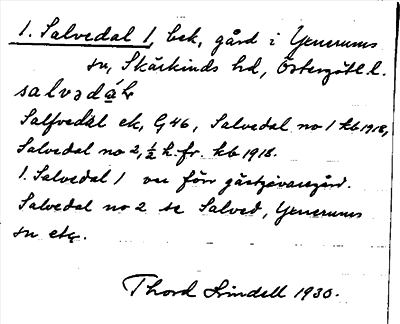 1. Salvedal 1, bek, gård i Yxnerums
sn, Skärkinds hd, Östergötl. l.
salvədáł
Salfvedal ek, G 46, Salvedal no 1 kb 1918,
Salvedal no 2, ½ h. fr. kb 1918.
1. Salvedal 1 var förr gästgivaregård.
Salvedal no 2 se Salved, Yxnerums
sn etc.
Thord Lindell 1930.